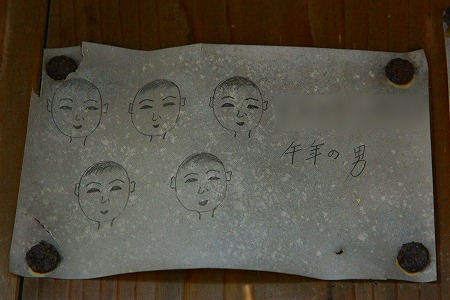 午年の男